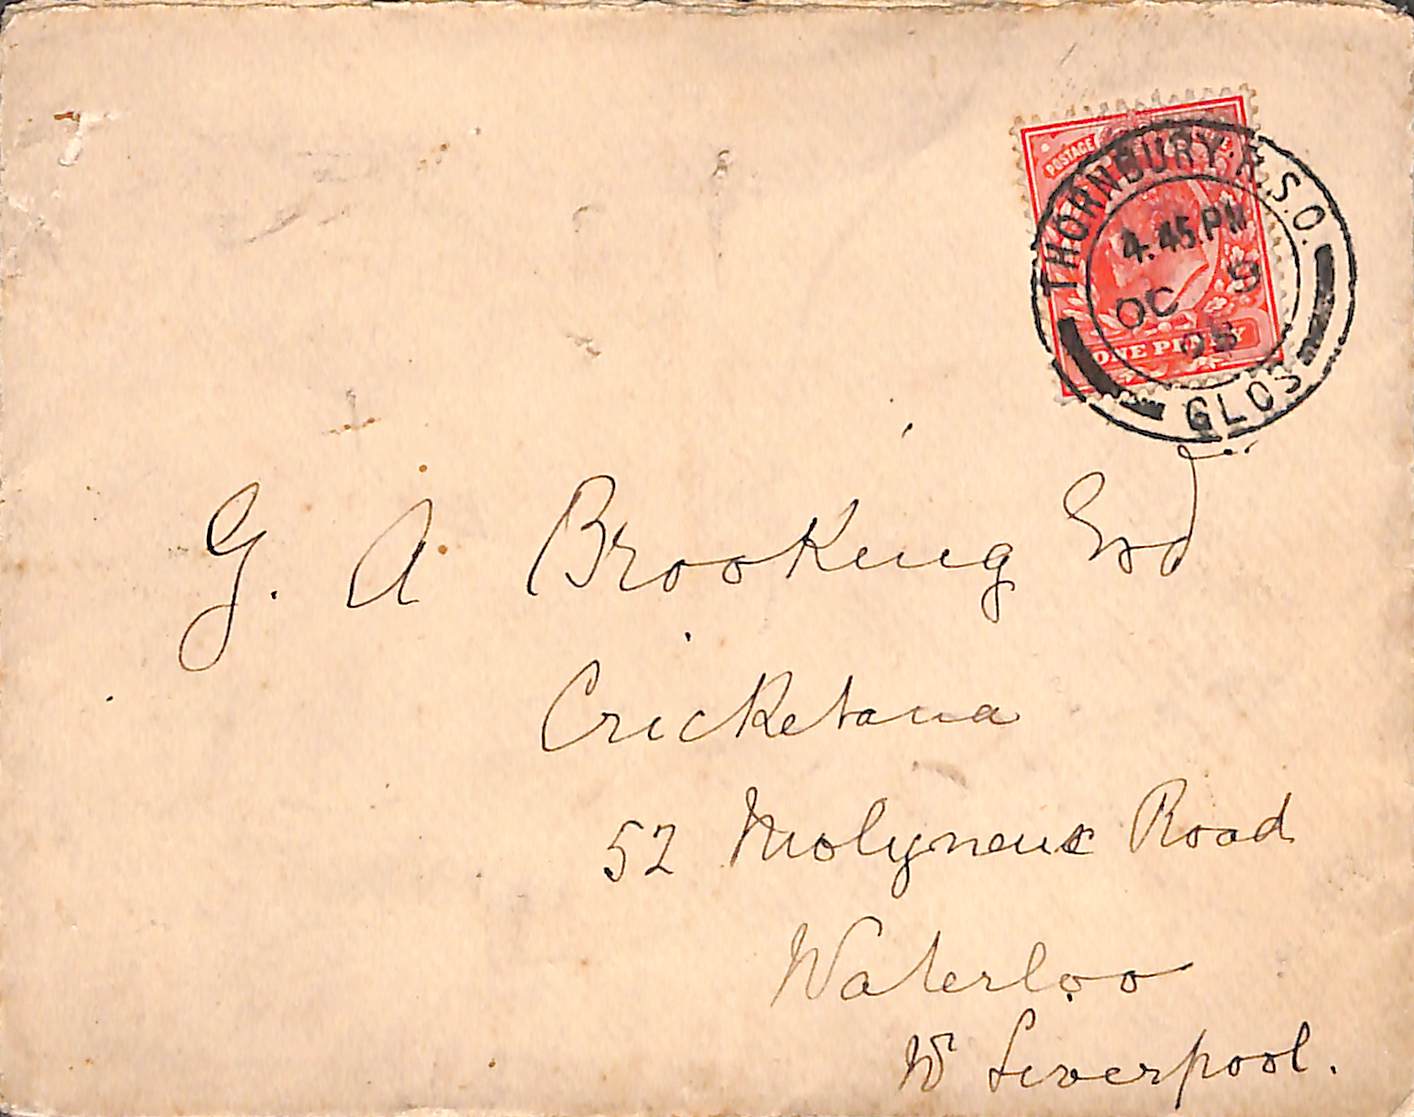 POSTAGE
THORNBURY. R.S.O.
4.45.PM
OC 9
ONE PENNY
GLOS
G. A Brooking Esq
Cricketana
52 Molyneux Road
Waterloo
Liverpool.